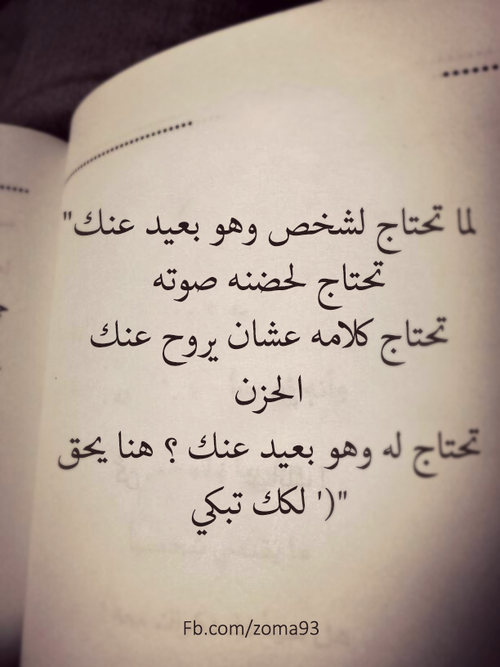 لما تحتاج لشخص وهو بعيد عنك"
تحتاج لحضنه صوته
تحتاج كلامه عشان يروح عنك
الحزن
تحتاج له وهو بعيد عنك ؟ هنا يحق
"(' لكك تبكي
Fb.com/zoma93